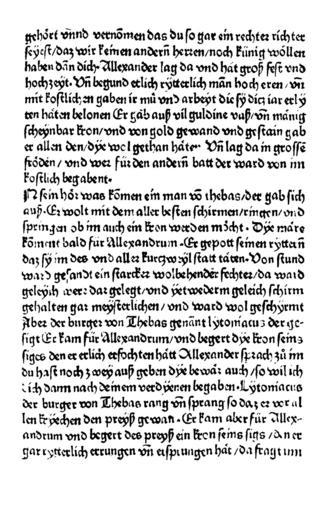 gehört vnnd vernomen das du so gar ein rechter richter
seyest/daz wir keinen andern herren/noch künig wöllen
haben dan dich. Allexander lag da vnd hat groß fest vnd
hochzeyt. Vñ begund etlich rytterlich man hoch eren/vñ
mit kostlichen gaben ir mü vnd arbeyt die sy diz iar erly
ten häten belonen Er gab auß vil guldine vaß/vñ mänig
scheynbar kron/vnd von gold gewand vnd gestain gab
er allen den/dye wol gethan häte. Vñ lag da in grosse
fröden/vnd wez für den andern batt der ward von im
kostlich begabent.
N sein hör was kömen ein man võ thebas/der gab sich
auß. Er wolt mit dem aller besten schirmen/ringen/vnd
springen ob im auch ein kron werden möcht. Dye märe
köment bald für Alexandrum. Er gepott seinen ryttern
daz sy im des vnd aller kurczweyl statt täten. Von stund
ward gesandt ein starcker wolbehender fechter/da ward
geleych wer dar gelegt/vnd yetwederm geleich schirm
gehalten gar meysterlichen/vnd ward wol geschyrmt
Aber der burger von Thebas genant lytoniacus der ge-
sigt Er kam für Allexandrum/vnd begert dye kron seins
siges den er erlich erfochten hätt Allexander sprach zü im
du hast noch zwey auß geben dye bewär auch/so wil ich
dich dann nach deinem verdyenen begaben. Lytoniacus
der burger von Thebas rang vñ sprang so daz er vor al
len kryechen den preyß gewan. Er kam aber für Allex-
andrum vnd begert des preyß ein kron seins sigs/den er
gar rytterlich errungen vñ ersprungen hät/da fragt im